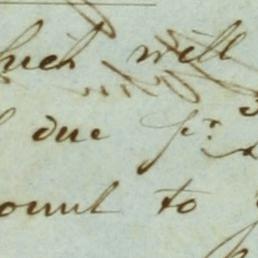 which will
due pr
ount to